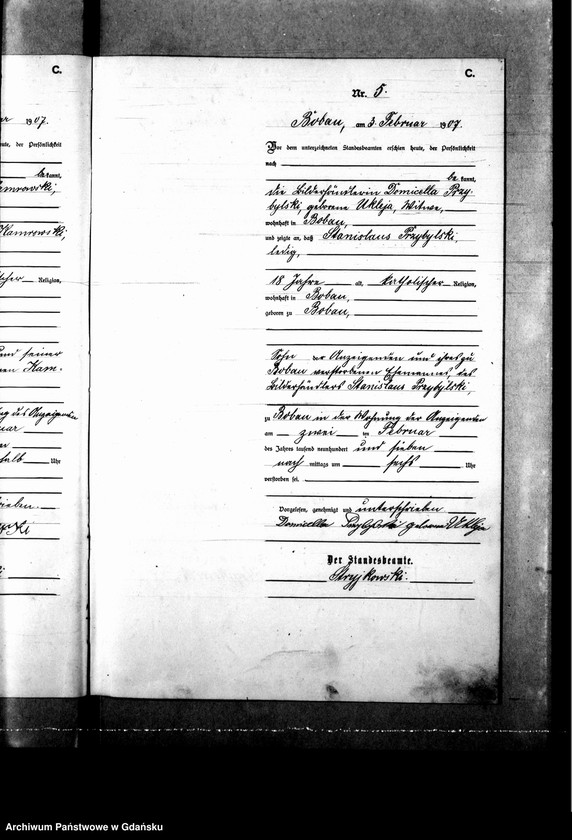 C.
1907.
heute, der Persönlichkeit
be kannt,
Kamrowski,
Religion,
und seiner
Kam-
Uhr
C.
Nr. 5.
Bobau, am 3. Februar 1907.
Vor dem unterzeichneten Standesbeamten erschien heute, der Persönlichkeit
nach
be kannt,
die Bilderhändlerin Domicella Przy-
bylski, geborene Ukleja, Witwe,
wohnhaft in Bobau,
und zeigte an, daß Stanislaus Przybylski,
ledig,
18 Jahre alt, katholischer Religion,
wohnhaft in Bobau,
geboren zu Bobau,
Sohn der Anzeigenden und ihres zu
Bobau verstorbenen Ehemannes, des
Bilderhändlers Stanislaus Przybylski,
zu Bobau in der Wohnung der Anzeigenden
am zwei ten Februar
des Jahres tausend neunhundert und sieben
nach mittags um sechs Uhr
verstorben sei.
Vorgelesen, genehmigt und unterschrieben
Domicella Przybylski geborene Ukleja
Der Standesbeamte.
Stryjkowski.
Archiwum Państwowe w Gdańsku